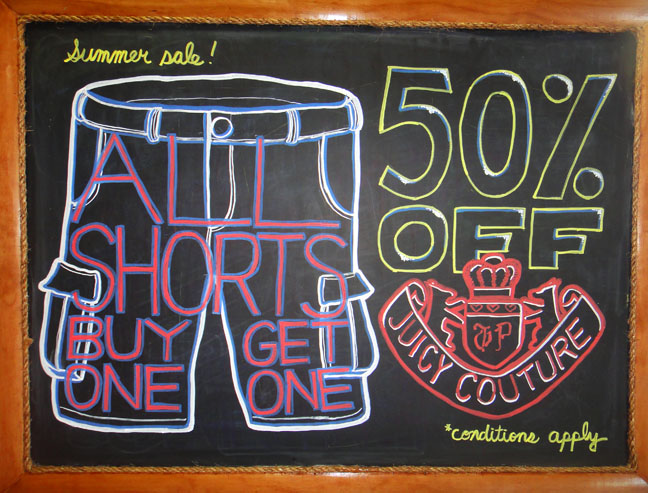 Summer sale!
ALL
SHORTS
BUY GET
ONE ONE
50%
OFF
JUICY COUTURE
*conditions apply